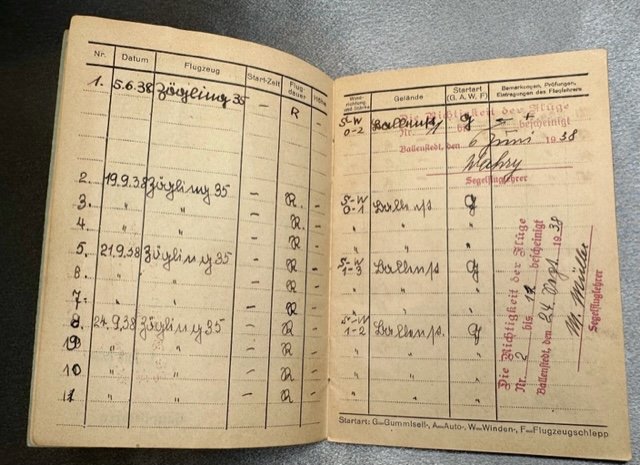 Nr. Datum Flugzeug Start-Zeit Flug-dauer Höhe
1. 5.6.38 Zögling 35 – R –
2. 19.9.38 Zögling 35 – R –
3. " " – R –
4. " " – R –
5. 21.9.38 Zögling 35 – R –
6. " " – R –
7. " " – R –
8 24.9.38 Zögling 35 – R –
9 " " – R –
10 " " – R –
11 " " – R –
Wind-richtung und Stärke Gelände Startart (G. A. W. F) Bemerkungen, Prüfungen, Eintragungen des Fluglehrers
S-W 0-2 g
Die Richtigkeit der Flüge
Nr. bis bescheinigt
Ballenstedt, den 6 Juni 1938
Segelfluglehrer
S-W 0-1 Ballenst g
" " "
" " "
S-W 1-3 Ballenst g
" " "
" " "
S-W 1-2 Ballenst. g
" " "
" " "
" " "
Die Richtigkeit der Flüge
Nr. 2 bis bescheinigt
Ballenstedt, den 24. Sept. 1938
M. Müller
Segelfluglehrer
Startart: G=Gummiseil-, A=Auto-, W=Winden-, F=Flugzeugschlepp